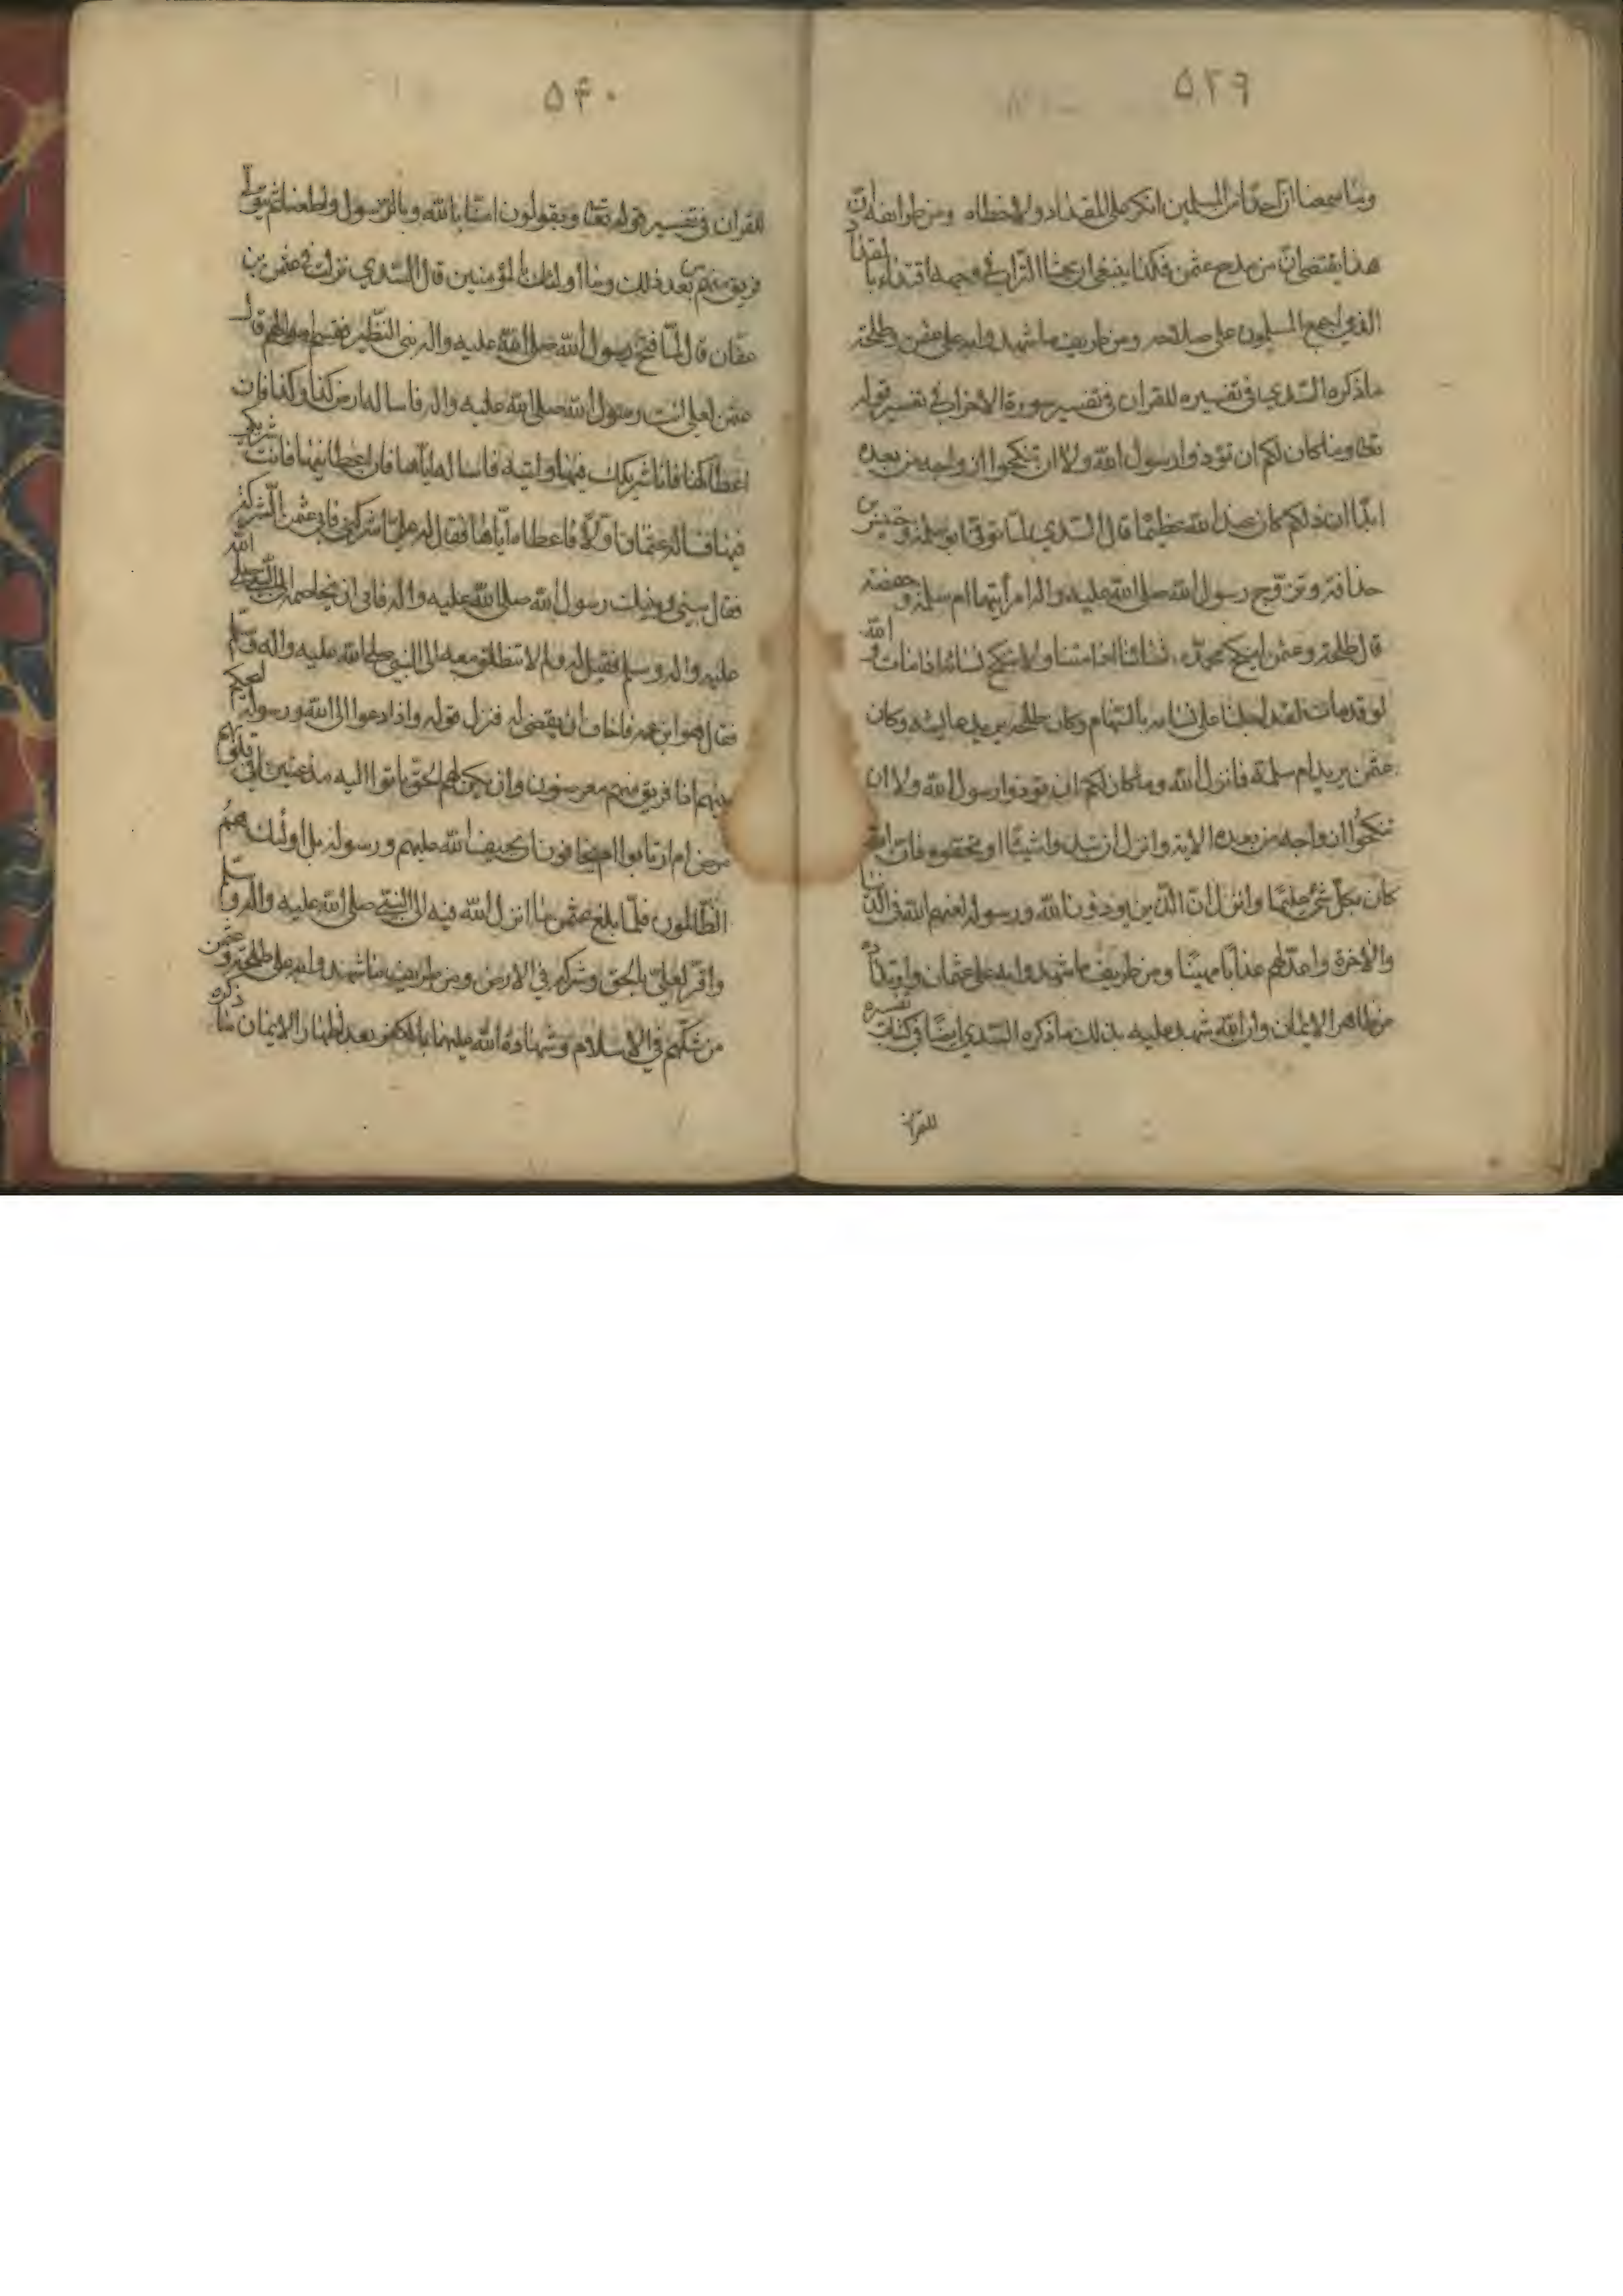 ٥٢٩
وما سمعنا ان احدا من المسلمين انكر على المقداد ولا خطاه ومن طرائفه ان
هذا يقتضي ان من مدح عثمن فكذا ينبغي ان يحثا التراب في وجهه اقتداء بالمقداد
الذي اجمع المسلمون على صلاحه ومن طريف ما شهدوا به على عثمن وطلحة
ما ذكره السدي في تفسيره للقران في تفسير سورة الاحزاب في تفسير قوله
تعالى وما كان لكم ان تؤذوا رسول الله ولا ان تنكحوا ازواجه من بعده
ابدا ان ذلكم كان عند الله عظيما قال السدي لما توفي ابو سلمة وخنيس بن
حذافة وتزوج رسول الله صلى الله عليه واله امرأتيهما ام سلمة وحفصة
قال طلحة وعثمن اينكح محمد نسائنا اذا متنا ولا ننكح نسائه اذا مات والله
لو قد مات لقد اجلنا على نسائه بالسهام وكان طلحة يريد عايشه وكان
عثمن يريد ام سلمة فانزل الله وما كان لكم ان تؤذوا رسول الله ولا ان
تنكحوا ازواجه من بعده الاية وانزل ان تبدوا شيئا او تخفوه فان الله
كان بكل شئ عليما وانزل ان الذين يؤذون الله ورسوله لعنهم الله في الدنيا
والاخرة واعد لهم عذابا مهينا ومن طريف ما شهدوا به على عثمان وارتداده
من ظاهر الايمان وان الله شهد عليه بذلك ما ذكره السدي ايضا في كتاب تفسيره
للقران
٥٣٠
للقران في تفسير قوله تعالى ويقولون امنا بالله وبالرسول واطعنا ثم يتولى
فريق منهم من بعد ذلك وما اولئك بالمؤمنين قال السدي نزلت في عثمن بن
عفان قال لما فتح رسول الله صلى الله عليه واله بني النظير فقسم اموالهم قال
عثمن لعلي ائت رسول الله صلى الله عليه واله فاساله ارض كذا وكذا فان
اعطاكها فانا شريكك فيها واتيه فاساله اياها فان اعطانيها فانت شريكي
فيها فساله عثمان اولا فاعطاه اياها فقال له علي اشركني فابى عثمن الشركة
فقال بيني وبينك رسول الله صلى الله عليه واله فابى ان يخاصمه الى النبي صلى الله
عليه واله وسلم فقيل له ولم لا تنطلق معه الى النبي صلى الله عليه واله وسلم
فقال هو ابن عمه فاخاف ان يقضي له فنزل قوله واذا دعوا الى الله ورسوله ليحكم
بينهم اذا فريق منهم معرضون وان يكن لهم الحق ياتوا اليه مذعنين افي قلوبهم
مرض ام ارتابوا ام يخافون ان يحيف الله عليهم ورسوله بل اولئك هم
الظالمون فلما بلغ عثمن ما انزل الله فيه اتى النبي صلى الله عليه واله وسلم
واقر لعلي بالحق وشركه في الارض ومن طريف ما شهدوا به على طلحة وعثمن
من شكهم في الاسلام وشهادة الله عليهما بالكفر بعد اظهار الايمان ما ذكره